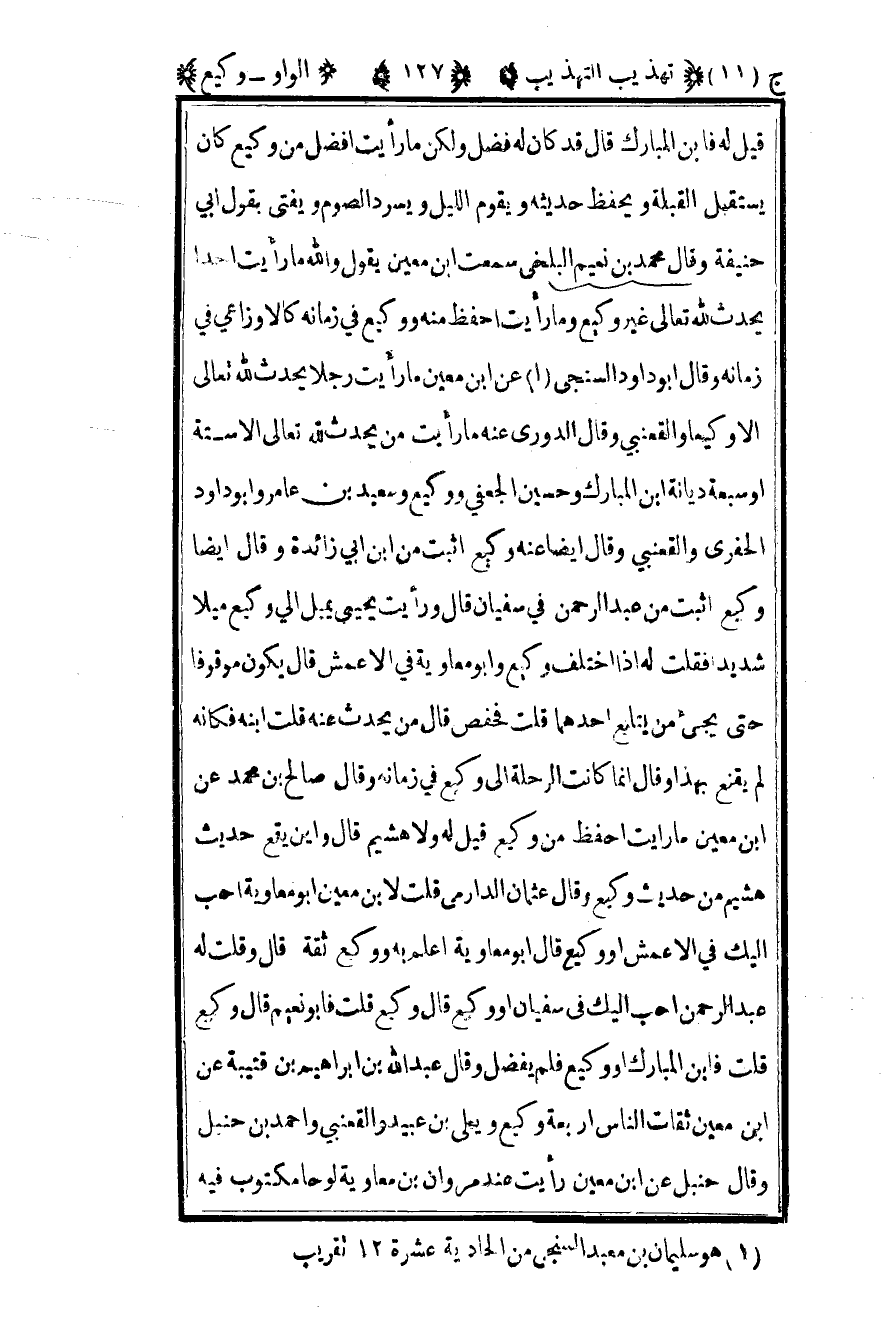 ج (١١) تهذيب التهذيب ١٢٧ الواو ــ وكيع
قيل له فابن المبارك قال قد كان له فضل ولكن ما رأيت افضل من وكيع كان
يستقبل القبلة ويحفظ حديثه ويقوم الليل ويسرد الصوم ويفتى بقول ابي
حنيفة وقال محمد بن نعيم البلخى سمعت ابن معين يقول والله ما رأيت احدا
يحدث لله تعالى غير وكيع وما رأيت احفظ منه ووكيع في زمانه كالاوزاعي في
زمانه وقال ابو داود السنجى (١) عن ابن معين ما رأيت رجلا يحدث لله تعالى
الا وكيعا والقعنبي وقال الدورى عنه ما رأيت من يحدث لله تعالى الا ستة
او سبعة ديانة ابن المبارك وحسين الجعفي ووكيع وسعيد بن عامر وابو داود
الحفرى والقعنبي وقال ايضا عنه وكيع اثبت من ابن ابي زائدة وقال ايضا
وكيع اثبت من عبد الرحمن في سفيان قال ورأيت يحيى يميل الي وكيع ميلا
شديدا فقلت له اذا اختلف وكيع وابو معاوية في الاعمش قال يكون موقوفا
حتى يجئ من يتابع احدهما قلت فحفص قال من يحدث عنه قلت ابنه فكانه
لم يقنع بهذا وقال انما كانت الرحلة الى وكيع في زمانه وقال صالح بن محمد عن
ابن معين ما رايت احفظ من وكيع قيل له ولا هشيم قال واين يقع حديث
هشيم من حديث وكيع وقال عثمان الدارمى قلت لابن معين ابو معاوية احب
اليك في الاعمش او وكيع قال ابو معاوية اعلم به ووكيع ثقة قال وقلت له
عبد الرحمن احب اليك فى سفيان او وكيع قال وكيع قلت فابو نعيم قال وكيع
قلت فابن المبارك او وكيع فلم يفضل وقال عبد الله بن ابراهيم بن قتيبة عن
ابن معين ثقات الناس اربعة وكيع ويعلى بن عبيد والقعنبي واحمد بن حنبل
وقال حنبل عن ابن معين رأيت عند مروان بن معاوية لوحا مكتوب فيه
(١) هو سليمان بن معبد السنجى من الحادية عشرة ١٢ تقريب